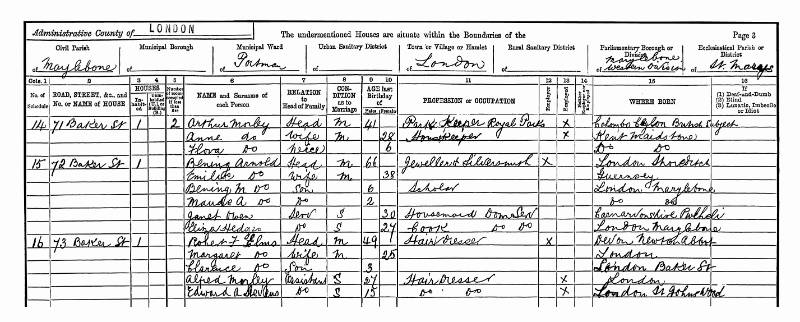 Administrative County of LONDON The undermentioned Houses are situate within the Boundaries of the Page 3
Civil Parish Municipal Borough Municipal Ward Urban Sanitary District Town or Village or Hamlet Rural Sanitary District Parliamentary Borough or Division Ecclesiastical Parish or District
of Marylebone of of Portman of of London of of Marylebone Western of St. Marys
Cols. 1 2 3 4 5 6 7 8 9 10 11 12 13 14 15 16
No. of Schedule ROAD, STREET, &c., and No. or NAME of HOUSE HOUSES NAME and Surname of each Person RELATION to Head of Family CONDITION as to Marriage AGE last Birthday of PROFESSION or OCCUPATION Employer Employed WHERE BORN If (1) Deaf-and-Dumb (2) Blind (3) Lunatic, Imbecile or Idiot
14 71 Baker St 1 2 Arthur Morley Head M 41 Park Keeper Royal Parks X Colombo Ceylon British Subject
Anne do Wife M 28 Housekeeper X Kent Maidstone
Flora do Neice 6 Do Do
15 72 Baker St 1 Bening Arnold Head M 66 Jeweller & Silversmith X London Shoreditch
Emilie Do Wife M 38 Guernsey
Bening M Do Son 6 Scholar London Marylebone
Maude A Do Do 2 Do Do
Janet Owen Serv S 30 Housemaid Dom Serv Caernarvonshire Pwllheli
Eliza Hedges Do S 27 Cook Do Do London Marylebone
16 73 Baker St 1 Robert F Elms Head M 49 Hair Dresser X Devon Newton Abbot
Margaret Do Wife M 25 London
Clarence Do Son 3 London Baker St
Alfred Morley Assistant S 27 Hair Dresser X London
Edward A Do S 15 Do Do X London St Johns Wood